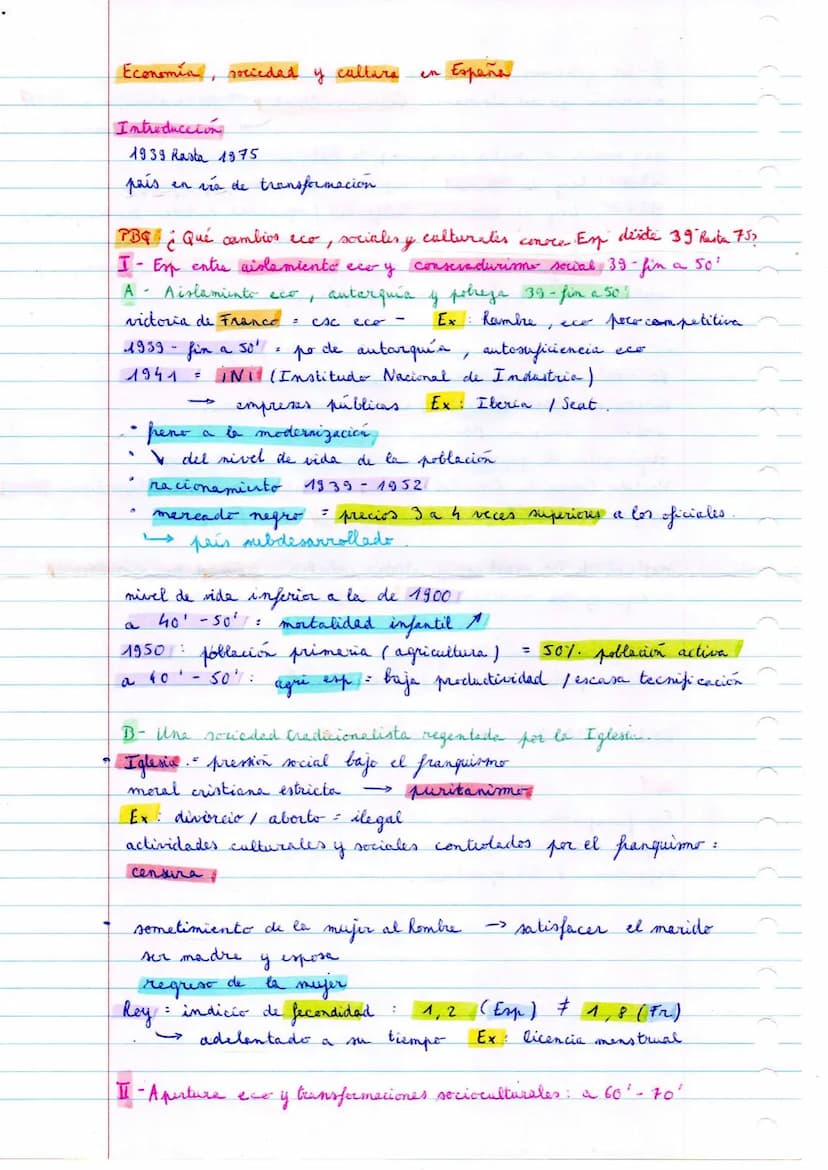 Economía, sociedad y cultura en España
Introducción
1939 hasta 1975
país en vía de transformación
PBQ: ¿Qué cambios eco, sociales y culturales conoce Esp desde 39' hasta 75?
I - Esp entre aislamiento eco y conservadurismo social 39 - fin a 50'
A - Aislamiento eco, autarquía y pobreza 39 - fin a 50'
victoria de Franco = csc eco - Ex: hambre, eco poco competitiva
1939 - fin a 50' = po de autarquía, autosuficiencia eco
1941 = INI (Instituto Nacional de Industria)
→ empresas públicas Ex: Iberia / Seat.
• freno a la modernización
• ↘ del nivel de vida de la población
• racionamiento 1939 - 1952
• mercado negro = precios 3 a 4 veces superiores a los oficiales.
↳ país subdesarrollado.
nivel de vida inferior a la de 1900
a 40' - 50' = mortalidad infantil ↗
1950: población primaria (agricultura) = 50% población activa
a 40' - 50': agri esp = baja productividad / escasa tecnificación
B - Una sociedad tradicionalista regentada por la Iglesia.
• Iglesia = pression social bajo el franquismo
moral cristiana estricta → puritanismo
Ex: divorcio / aborto = ilegal
actividades culturales y sociales controlados por el franquismo:
censura
- sometimiento de la mujer al hombre → satisfacer el marido
ser madre y esposa
regreso de la mujer
Hoy = indicio de fecondidad: 1,2 (Esp) ≠ 1,8 (Fr)
↳ adelantado a su tiempo Ex: licencia menstrual
II - Apertura eco y transformaciones socioculturales: a 60' - 70'